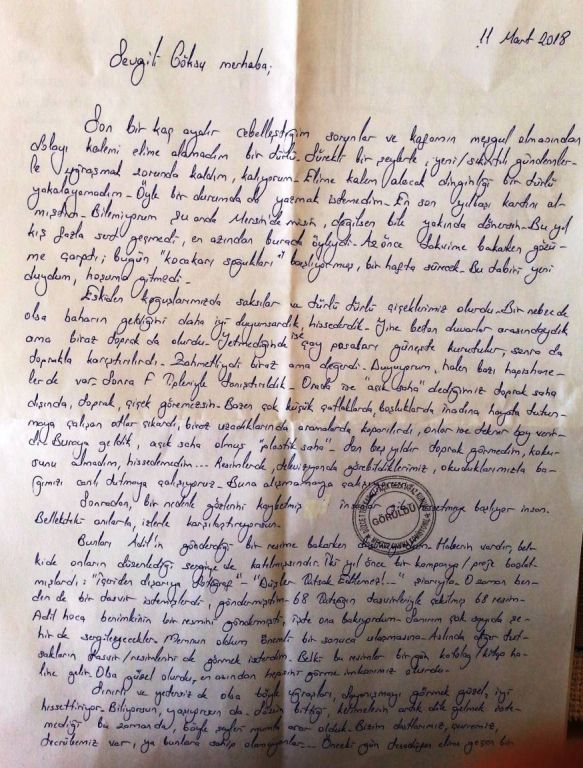 11 Mart 2018
Sevgili Göksu merhaba;
Son bir kaç aydır cebelleştiğim sorunlar ve kafamın meşgul olmasından
dolayı kalemi elime alamadım bir türlü. Sürekli bir şeylerle, yeni/sıkıntılı gündemler-
le uğraşmak zorunda kaldım, kalıyorum. Elime kalem alacak dinginliği bir türlü
yakalayamadım. Öyle bir durumda da yazmak istemedim. En son yılbaşı kartını al-
mıştım. Bilemiyorum şu anda Mersin'de misin, değilsen bile yakında dönersin. Bu yıl
kış fazla sert geçmedi, en azından burada öyleydi. Az önce takvime bakarken gözü-
me çarptı; bugün "kocakarı soğukları" başlıyormuş, bir hafta sürecek. Bu tabiri yeni
duydum, hoşuma gitmedi.
Eskiden koğuşlarımızda saksılar ve türlü türlü çiçeklerimiz olurdu. Bir nebze de
olsa baharın geldiğini daha iyi duyumsardık, hissederdik. Yine beton duvarlar arasındaydık
ama biraz toprak da olurdu. Yetmediğinde ise çay posaları güneşte kurutulur, sonra da
toprakla karıştırılırdı. Zahmetliydi biraz ama değerdi. Duyuyorum, halen bazı hapishane-
lerde var. Sonra F Tipleriyle tanıştırıldık. Orada ise "açık saha" dediğimiz toprak saha
dışında, toprak, çiçek göremezsin. Bazen çok küçük çatlaklarda, boşluklarda inadına hayata tutun-
maya çalışan otlar çıkardı, biraz uzadıklarında aramalarda koparılırdı, onlar ise tekrar boy verir-
di. Buraya geldik, açık saha olmuş "plastik saha". Son beş yıldır toprak görmedim, koku-
sunu almadım, hissedemedim... Resimlerde, televizyonda görebildiklerimiz, okuduklarımızla ba-
ğımızı canlı tutmaya çalışıyoruz. Buna alışmamaya
Sonradan, bir nedenle gözlerini kaybetmiş başlıyor insan.
Bellekteki anılarla, izlerle karşılaştırıyorsun.
GÖRÜLDÜ
Bunları Adil'in gönderdiği bir resime bakarken Haberin vardır, bel-
ki de onların düzenlediği sergiye de katılmışsındır. İki yıl önce bir kampanya/proje başlat-
mışlardı: "içeriden dışarıya fotoğraf" - "Düşler Tutsak Edilemez!.." şiarıyla. O zaman ben-
den de bir tasvir istemişlerdi, göndermiştim. 68 tutsağın tasvirleriyle çekilmiş 68 resim.
Adil hoca benimkinin bir resmini göndermişti, işte ona bakıyordum. Sanırım çok sayıda şe-
hirde sergileyecekler. Memnun oldum önemli bir sonuca ulaşmasına. Aslında diğer tut-
sakların tasvir/resimlerini de görmek isterdim. Belki bu resimler bir gün katalog/kitap ha-
line gelir. Olsa güzel olurdu, en azından hepsini görme imkanımız olurdu.
Sınırlı ve yetersiz de olsa böyle uğraşları, dayanışmayı görmek güzel, iyi
hissettiriyor. Biliyorsun, yaşıyorsun da. Sözün bittiği, kelimelerin artık dile gelmek iste-
mediği bu zamanda, böyle şeyleri mumla arar olduk. Bizim dostlarımız, çevremiz,
tecrübemiz var, ya bunlara sahip olamayanlar... Önceki gün elime geçen bir